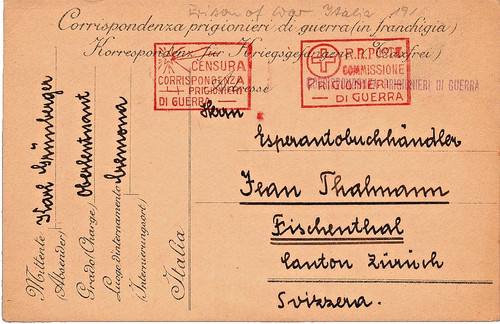 Prison of War Italia 191
Corrispondenza prigionieri di guerra (in franchigia)
Korrespondenz für Kriegsgefangene (Taxfrei)
CENSURA
CORRISPONDENZA
PRIGIONIERI
DI GUERRA
R.R. POSTE
COMMISSIONE
PRIGIONIERI
DI GUERRA
PRIGIONIERI DI GUERRA
Adresse
Herrn
Esperantobuchhändler
Jean Thalmann
Fischenthal
Canton Zürich
Svizzera.
Mittente Karl Grünberger
(Absender)
Grado Oberleutnant
(Charge)
Luogo d'internamento Cremona
(Internierungsort)
Italia